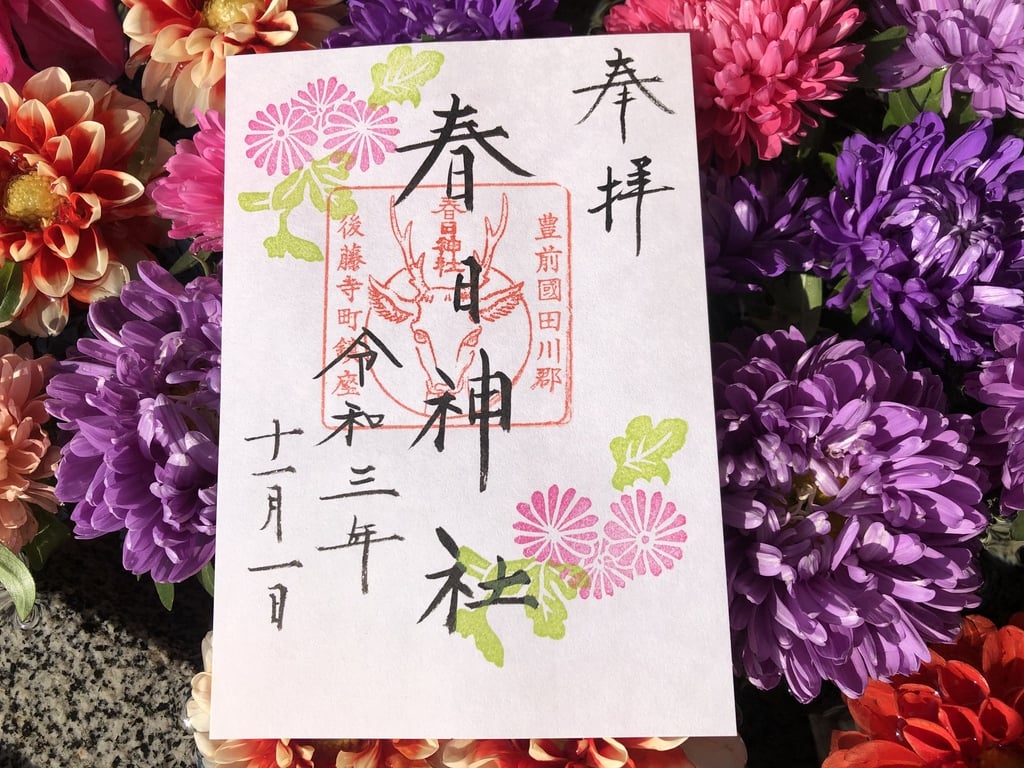 奉拝
豊前國田川郡
春日神社
春日神社
後藤寺町鎮座
令和三年
十一月一日